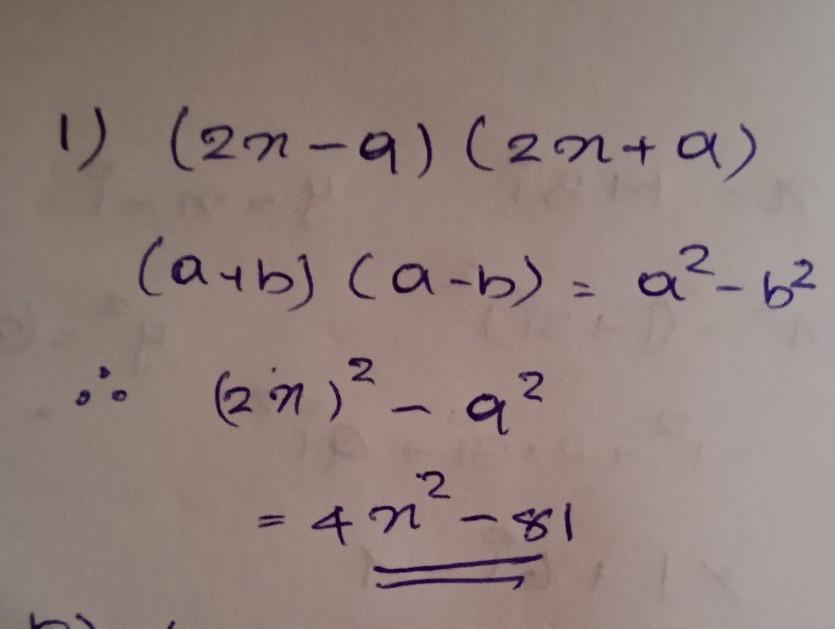 1) (2x - 9) (2x + 9)
(a + b) (a - b) = a² - b²
∴ (2x)² - 9²
= 4x² - 81